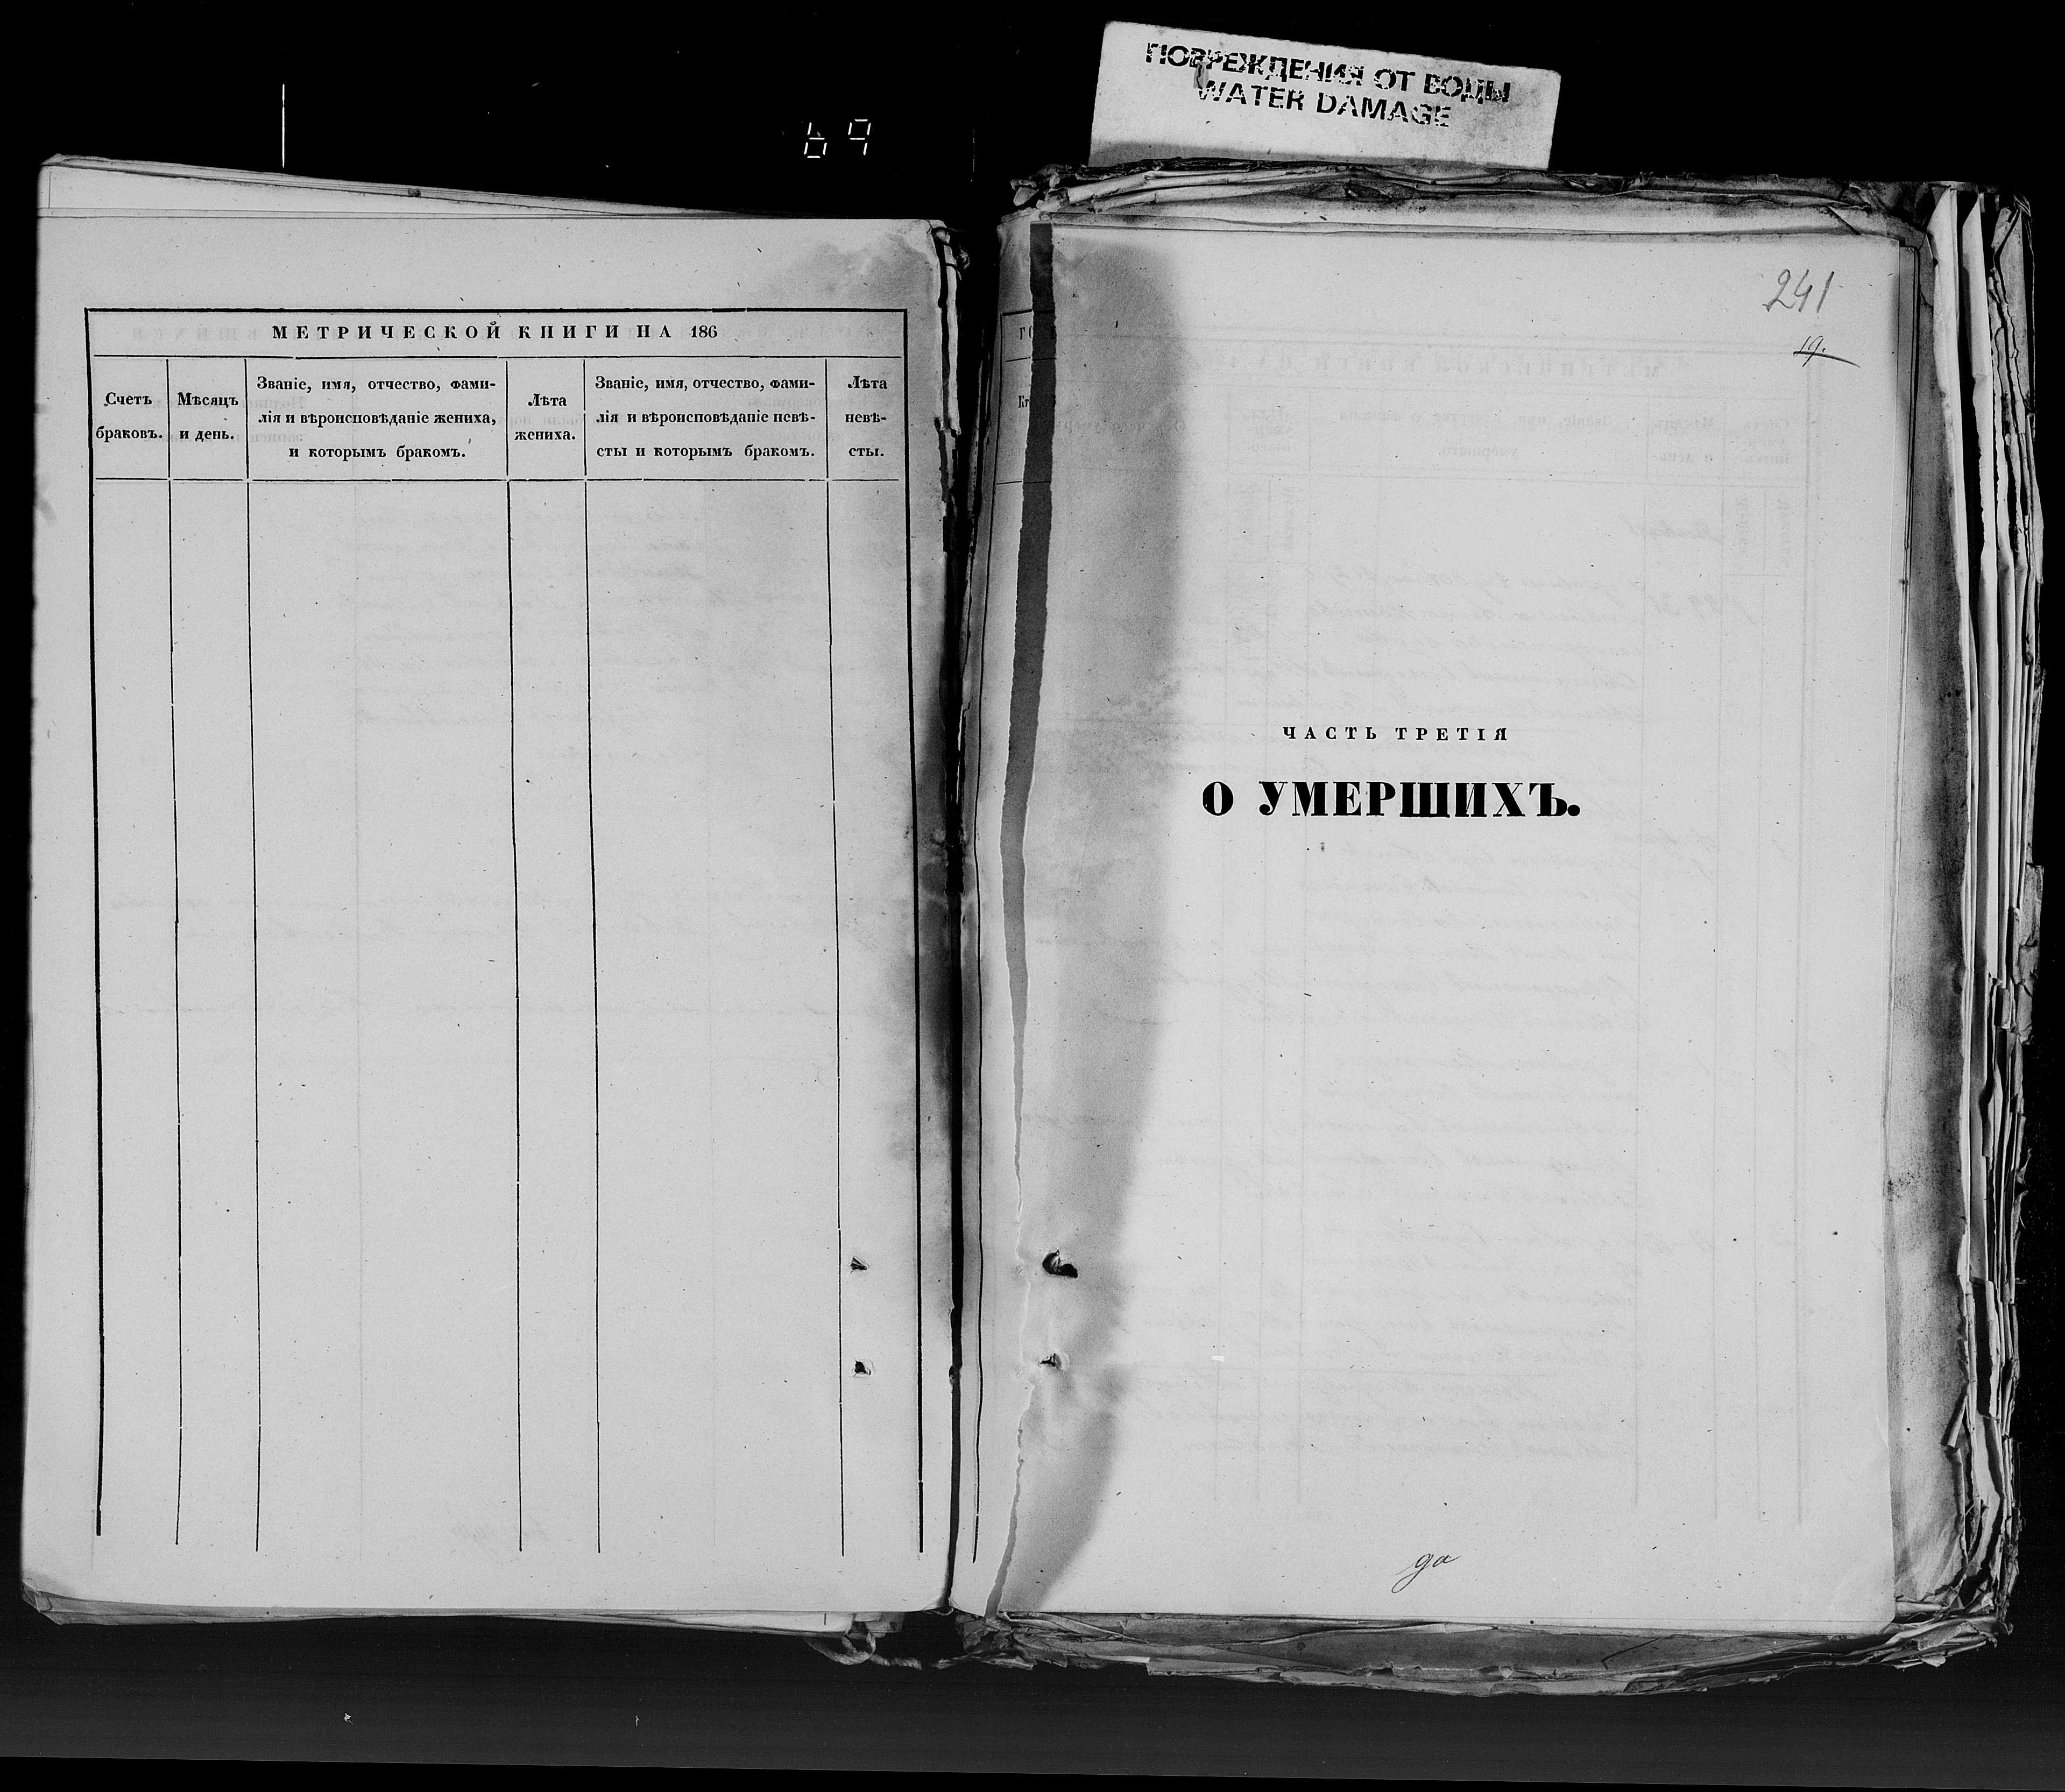 ПОВРЕЖДЕНИЯ ОТ ВОДЫ
WATER DAMAGE
69
МЕТРИЧЕСКОЙ КНИГИ НА 186
Счетъ браковъ.
Мѣсяцъ и день.
Званіе, имя, отчество, фами-
лія и вѣроисповѣданіе жениха,
и которымъ бракомъ.
Лѣта
жениха.
Званіе, имя, отчество, фами-
лія и вѣроисповѣданіе невѣ-
сты и которымъ бракомъ.
Лѣта
невѣ-
сты.
241
19.
ЧАСТЬ ТРЕТІЯ
О УМЕРШИХЪ.